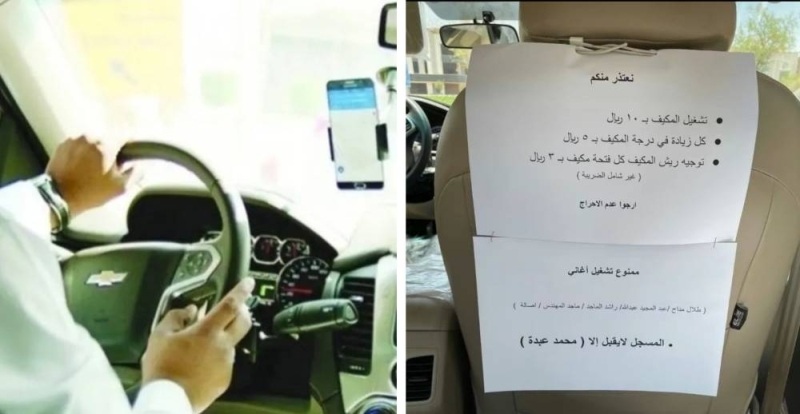 نعتذر منكم
• تشغيل المكيف بـ ١٠ ريال
• كل زيادة في درجة المكيف بـ ٥ ريال
• توجيه ريش المكيف كل فتحة مكيف بـ ٣ ريال
( غير شامل الضريبة )
ارجوا عدم الاحراج
ممنوع تشغيل أغاني
( طلال مداح /عبد المجيد عبدالله/ راشد الماجد / ماجد المهندس / اصالة )
• المسجل لايقبل إلا ( محمد عبدة )